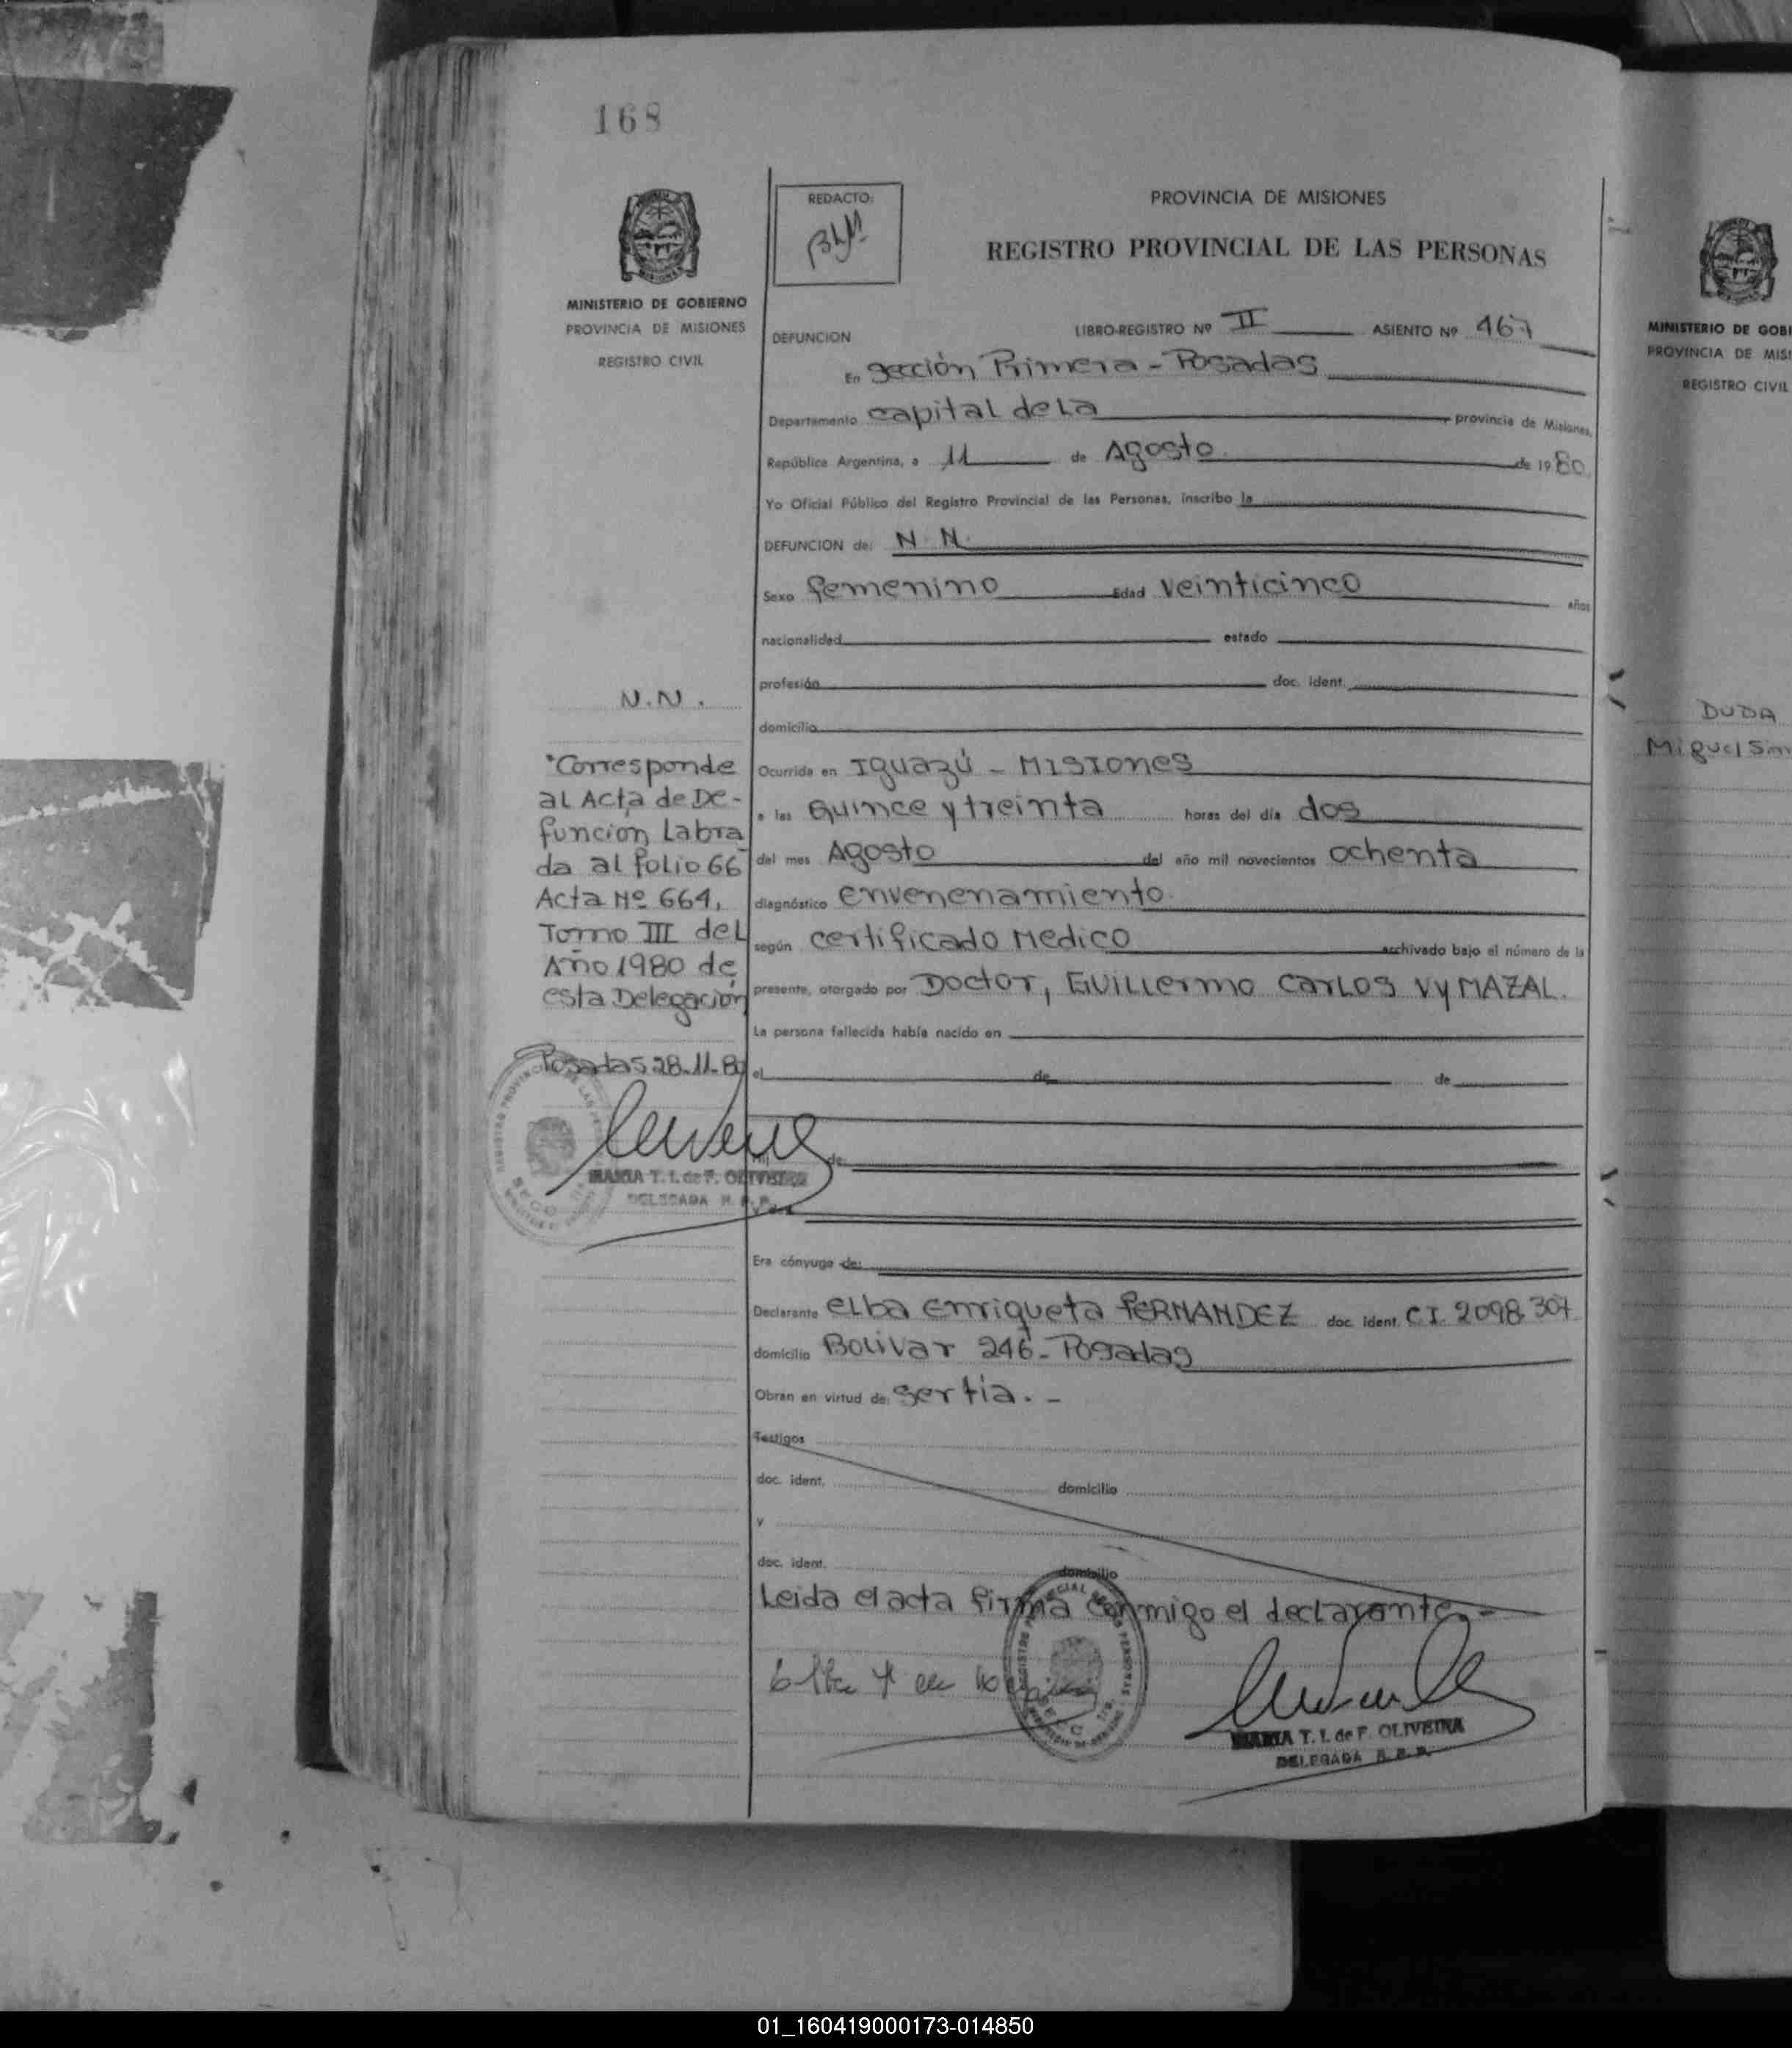 168
REDACTO:
PROVINCIA DE MISIONES
REGISTRO PROVINCIAL DE LAS PERSONAS
MINISTERIO DE GOBIERNO
PROVINCIA DE MISIONES
REGISTRO CIVIL
DEFUNCION LIBRO-REGISTRO Nº II ASIENTO Nº 467
En sección Primera - Posadas
Departamento capital de la provincia de Misiones,
República Argentina, a 11 de Agosto de 1980
Yo Oficial Público del Registro Provincial de las Personas, inscribo la
DEFUNCION de: N N.
Sexo femenino Edad veinticinco años
nacionalidad estado
profesión doc. ident.
domicilio
Ocurrida en Iguazú - Misiones
a las Quince y treinta horas del día dos
del mes Agosto del año mil novecientos ochenta
diagnóstico envenenamiento.
según certificado Medico archivado bajo el número de la
presente, otorgado por Doctor, Guillermo Carlos Vy MAZAL.
La persona fallecida había nacido en
el de de
de:
Era cónyuge de:
Declarante Elba Enriqueta FERNANDEZ doc. ident. CI. 2098.307
domicilio Bolivar 246 - Posadas
Obran en virtud de: ser tía. -
Testigos
doc. ident. domicilio
y
doc. ident. domicilio
Leida el acta firma conmigo el declarante. -
MARIA T. I. de F. OLIVEIRA
DELEGADA R. P. P.
N.N.
"Corresponde
al Acta de De-
funcion Labra
da al folio 66
Acta Nº 664,
Tomo III del
Año 1980 de
esta Delegación
Posadas 28-11-80
MARIA T. I. de F. OLIVEIRA
DELEGADA R. P. P.
MINISTERIO DE GOBI
PROVINCIA DE MISI
REGISTRO CIVIL
DUDA
Miguel Sim
01_160419000173-014850